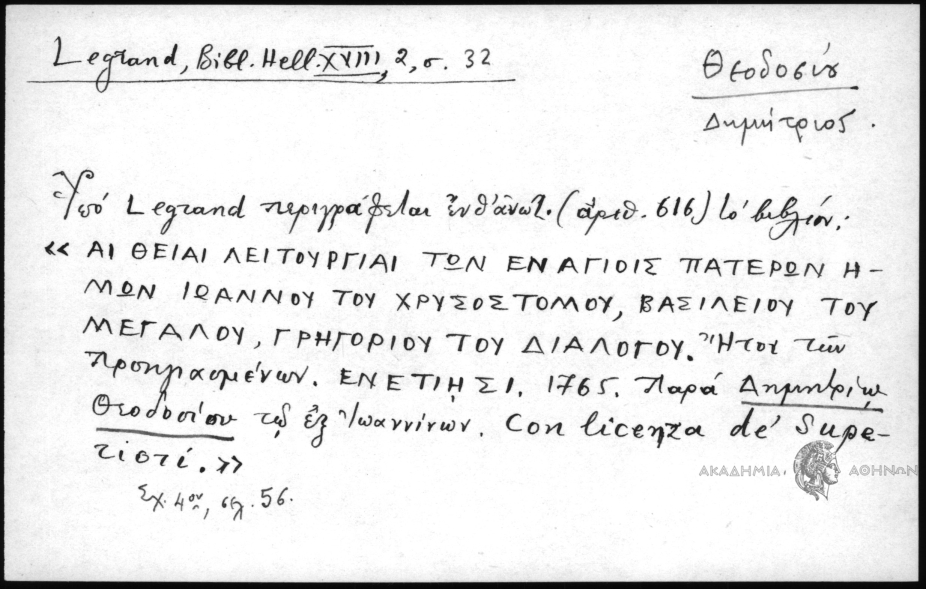 Legrand, Bibl. Hell. XVIII, 2, σ. 32
Θεοδοσίου
Δημήτριος.
Ὑπό Legrand περιγράφεται ἐνθ' ἀνωτ. (ἀριθ. 616) τό βιβλίον:
« ΑΙ ΘΕΙΑΙ ΛΕΙΤΟΥΡΓΙΑΙ ΤΩΝ ΕΝ ΑΓΙΟΙΣ ΠΑΤΕΡΩΝ Η-
ΜΩΝ ΙΩΑΝΝΟΥ ΤΟΥ ΧΡΥΣΟΣΤΟΜΟΥ, ΒΑΣΙΛΕΙΟΥ ΤΟΥ
ΜΕΓΑΛΟΥ, ΓΡΗΓΟΡΙΟΥ ΤΟΥ ΔΙΑΛΟΓΟΥ. Ἤτοι τῶν
Προηγιασμένων. ΕΝΕΤΙῌΣΙ. 1765. Παρά Δημητρίῳ
Θεοδοσίου τῷ ἐξ Ἰωαννίνων. Con licenza de' Supe-
riori. »
Σχ. 4ον, σελ. 56.
ΑΚΑΔΗΜΙΑ ΑΘΗΝΩΝ